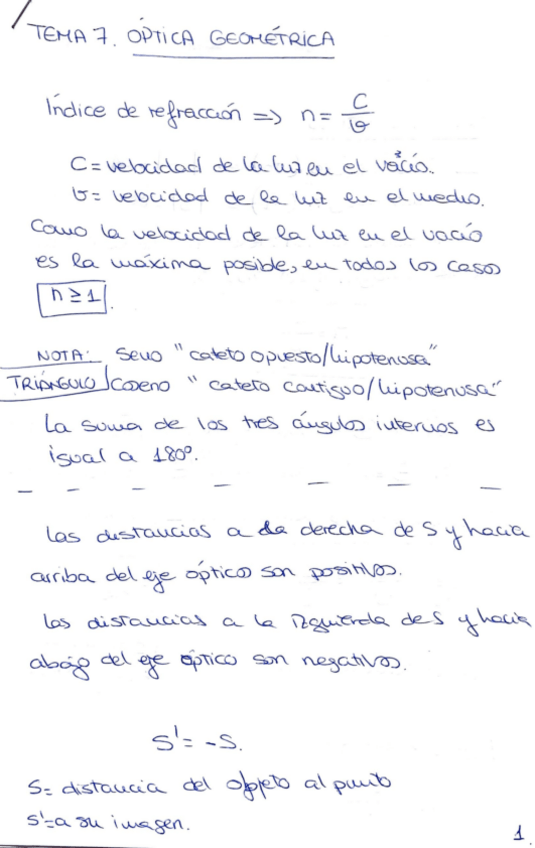 TEMA 7. ÓPTICA GEOMÉTRICA
Índice de refracción => n = C/v
C = velocidad de la luz en el vacío.
v = velocidad de la luz en el medio.
Como la velocidad de la luz en el vacío
es la máxima posible, en todos los casos
n ≥ 1.
NOTA: Seno "cateto opuesto/hipotenusa"
TRIÁNGULO Coseno "cateto contiguo/hipotenusa"
La suma de los tres ángulos internos es
igual a 180º.
Las distancias a la derecha de S y hacia
arriba del eje óptico son positivos.
Las distancias a la izquierda de S y hacia
abajo del eje óptico son negativos.
S' = -S.
S = distancia del objeto al punto
S' = a su imagen.
1.